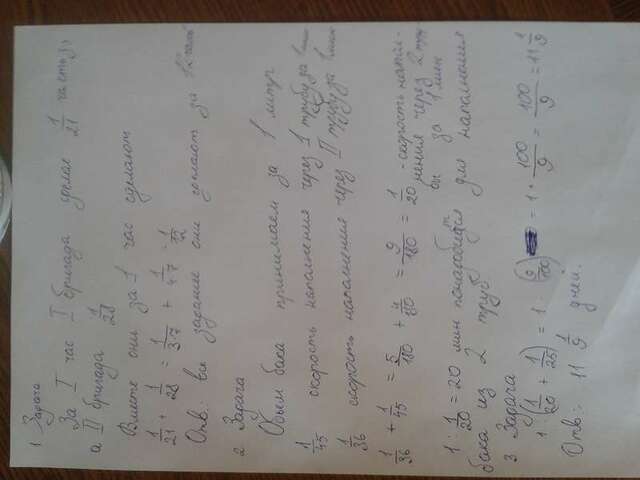 1 Задача
За 1 час I бригада сделает 1/21 часть,
а II бригада 1/28
Вместе они за 1 час сделают
1/21 + 1/28 = 1/3·7 + 1/4·7 = 1/12
Отв: все задание они сделают за 12 часов
2 Задача
Объем бака принимаем за 1
1/45 скорость наполнения через 1 трубу за 1 мин
1/36 скорость наполнения через II трубу за 1 мин
1/36 + 1/45 = 5/180 + 4/180 = 9/180 = 1/20 - скорость наполнения через 2 трубы за 1 мин
1 : 1/20 = 20 мин понадобится для наполнения
бака из 2 труб
3 Задача
1 : (1/20 + 1/25) = 1 : (9/100) = 1 · 100/9 = 100/9 = 11 1/9
Отв: 11 1/9 дней.